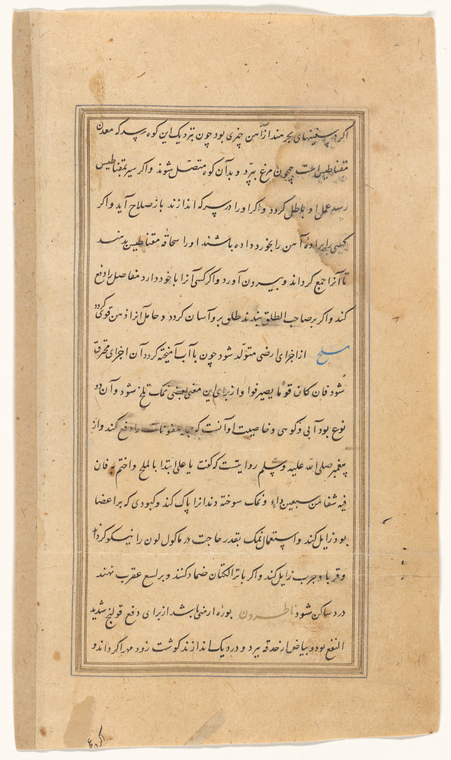 اکر در سفینهای بحر مند از آهن چیزی بود چون نزدیک این کوه رسد که معدن
مقناطیس است همچون مرغ بپرد و بدان کوه متصل شوند و اکر سیر بمقناطیس
رسد عمل او باطل کردد و اکر او را در سرکه اندازند باز صلاح آید و اکر
کسی را براده آهن را بخورد داده باشند او را سحاقه مقناطیس بدهند
تا آنرا جمع کرداند و بیرون آورد و اکر کسی آنرا باخود دارد مفاصل را دفع
کند و اکر بر صاحب الطلق بندند طلق برو آسان کردد و حامل آنرا ذهن قوی کردد
ملح از اجزای ارضی متولد شود چون با آب آمیخته کردد آن اجزای محترق
شود فان کان قوما یصیر فوا و از برای این معنی بعضی نمک تلخ شود و آن دو
نوع بود آبی و کوهی و خاصیت او آنست که جمله عفونات را دفع کند و از
پیغمبر صلی الله علیه وسلم روایتست که گفت یا علی ابتدا بالملح واختم به فان
فیه شفا من سبعین داء و نمک سوخته دندانرا پاک کند و کبودی که بر اعضا
بود زایل کند و استعمال نمک بقدر حاجت در ماکول لون را نیکو کرداند
و قوبا و جرب زایل کند و اکر با بزر الکتان ضماد کنند و بر لسع عقرب نهند
درد ساکن شود نطرون بوره ارمنی باشد از برای دفع قولنج شدید
النفع بود و بیاض از حدقه ببرد و در دیک اندازند کوشت زود مهرا کرداند و